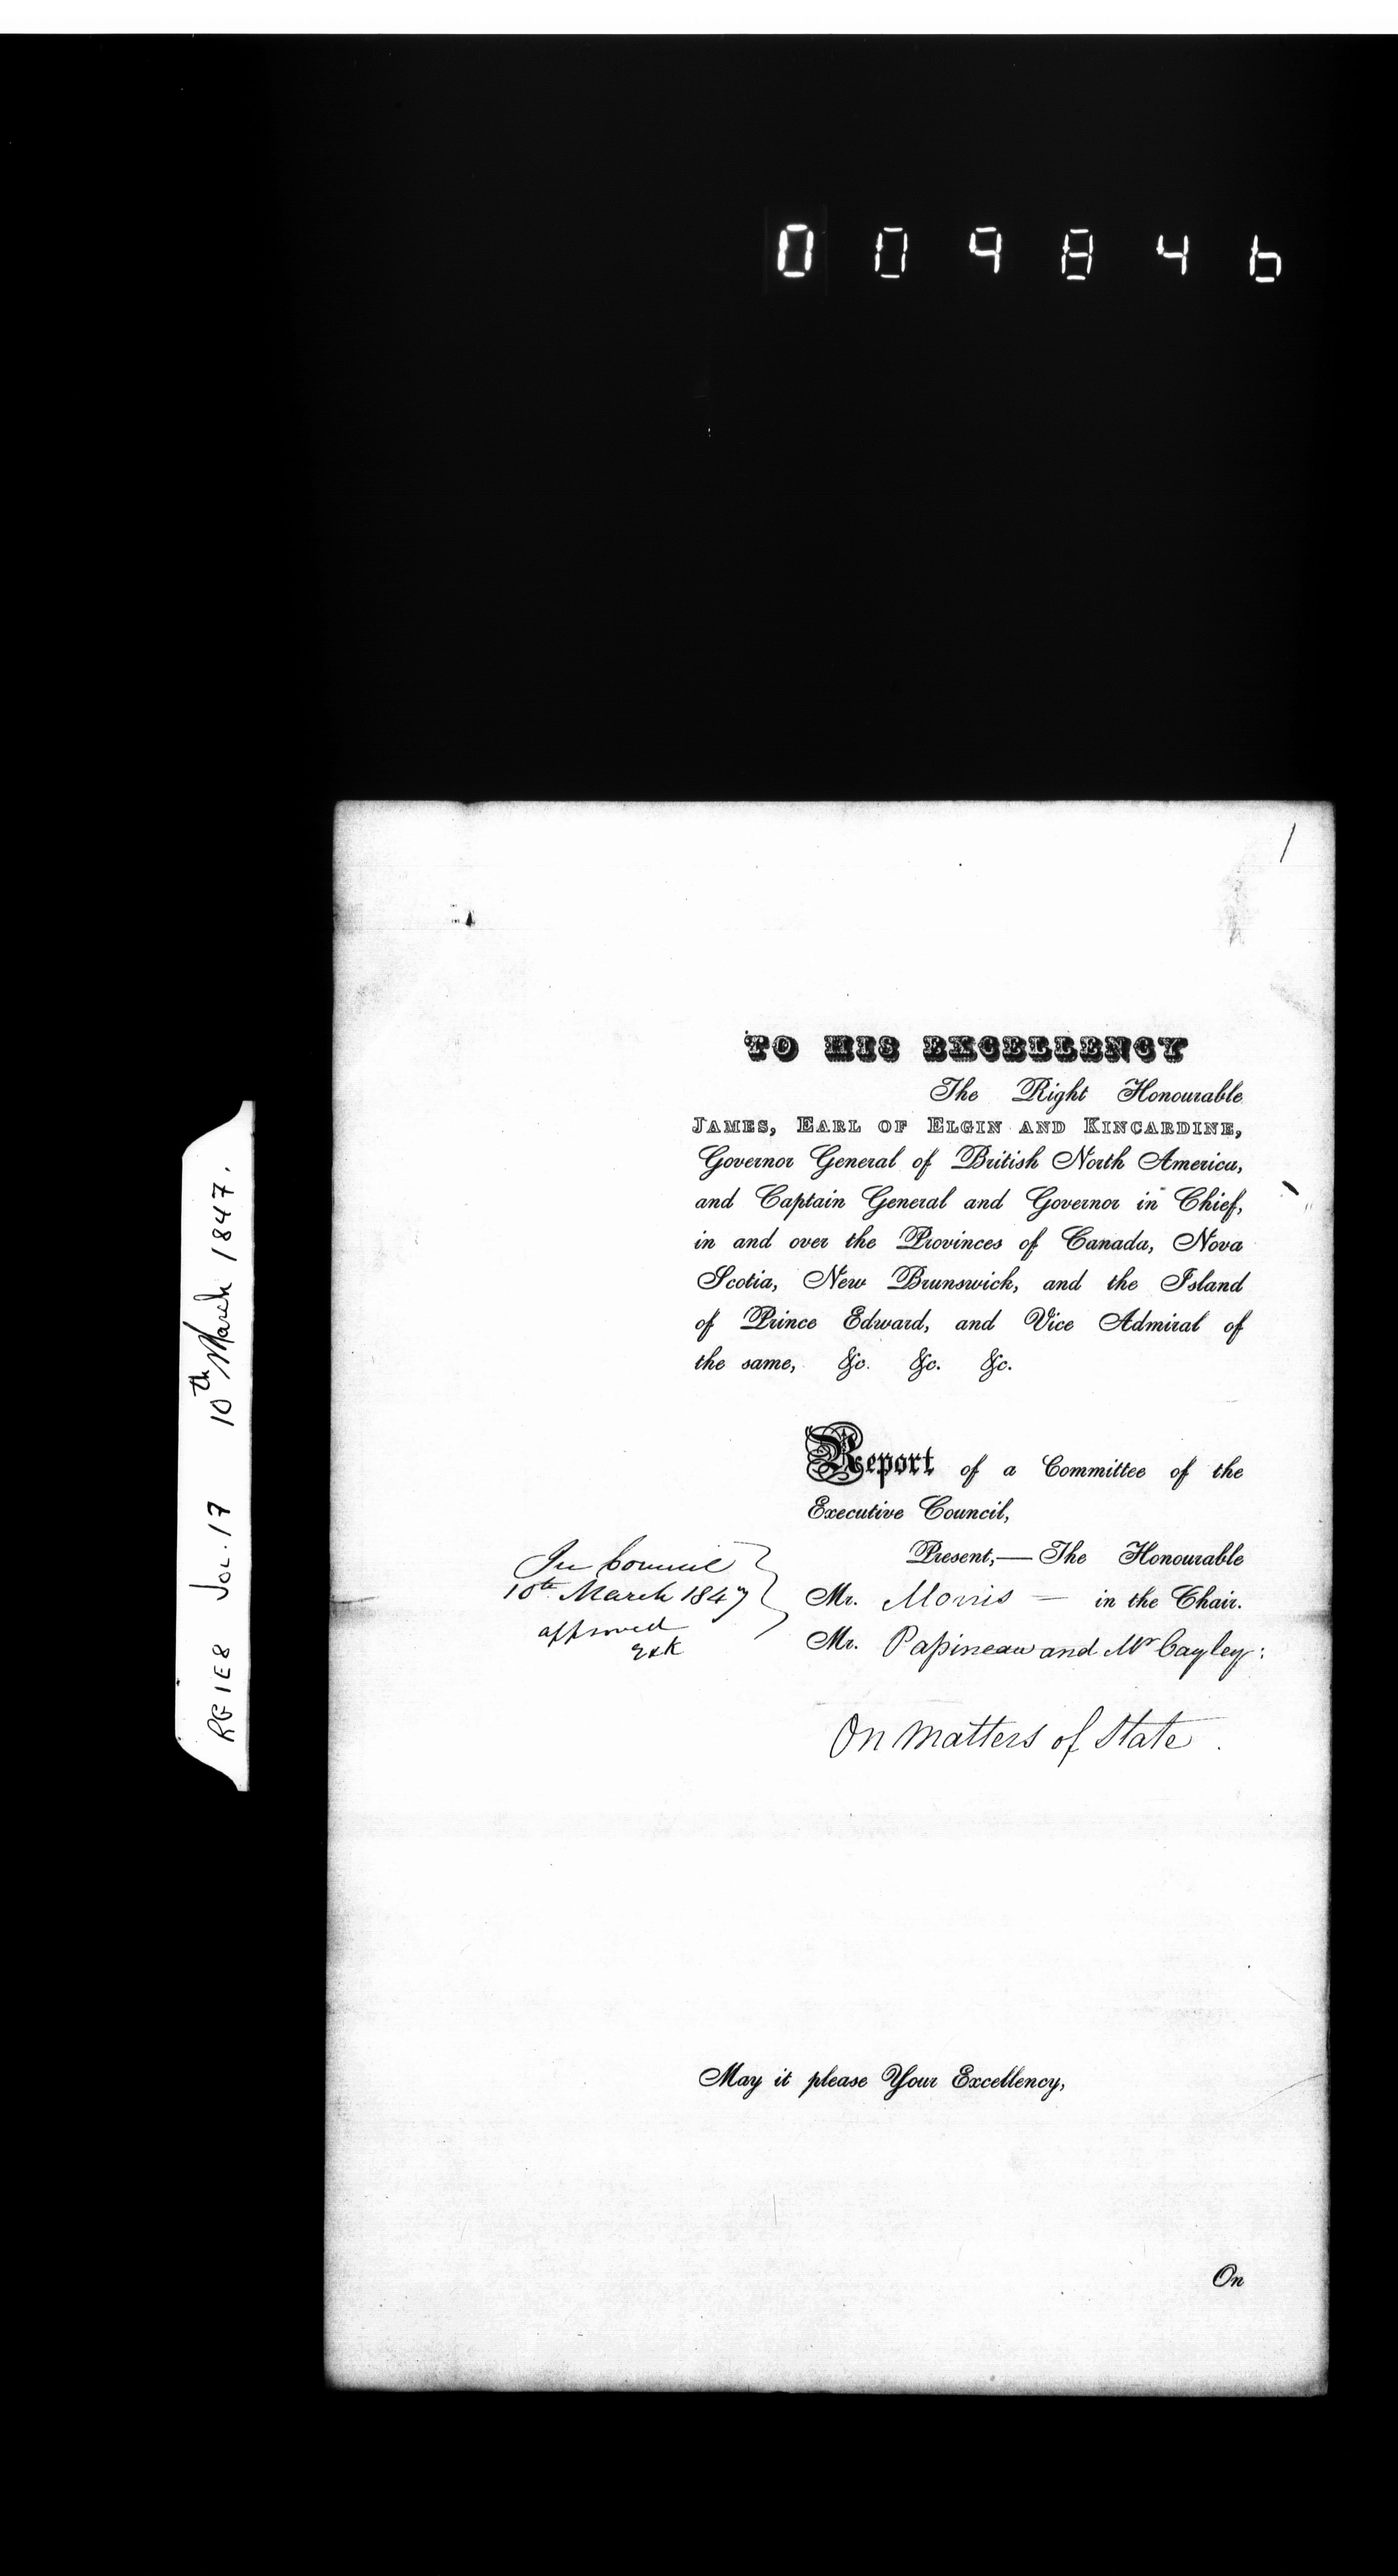 009846
1
TO HIS EXCELLENCY
The Right Honourable
JAMES, EARL OF ELGIN AND KINCARDINE,
Governor General of British North America,
and Captain General and Governor in Chief,
in and over the Provinces of Canada, Nova
Scotia, New Brunswick, and the Island
of Prince Edward, and Vice Admiral of
the same, &c. &c. &c.
Report of a Committee of the
Executive Council,
Present,—The Honourable
Mr. Morris — in the Chair.
Mr. Papineau and Mr Cayley:
In Council
10th March 1847
approved
E&K
On Matters of State.
May it please Your Excellency,
On
RG1E8 Vol. 17 10th March 1847.